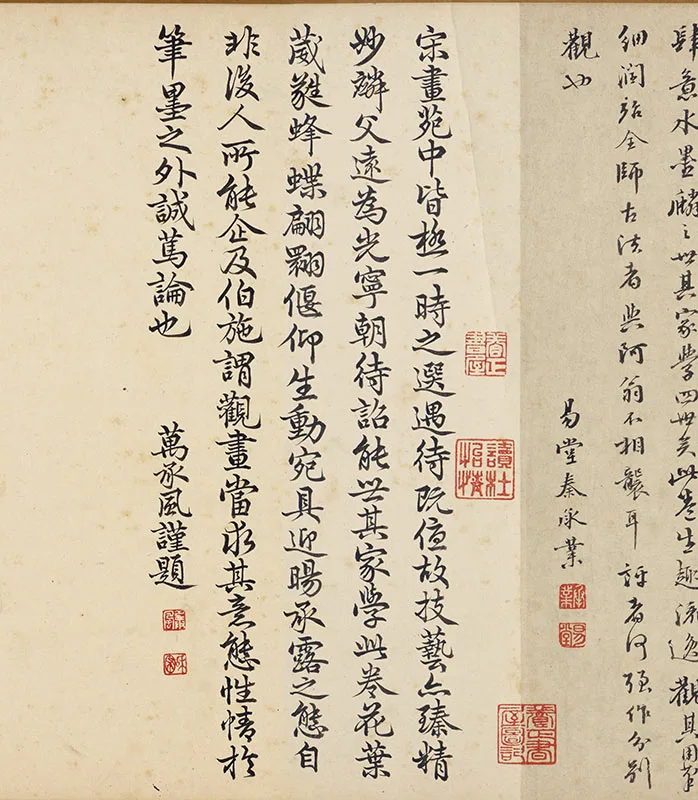 肆意水墨麟之世其家學四世矣此卷生趣流逸觀其用筆
細潤殆全師古法者與阿翁不相襲耳評者何強作分別
觀也
易堂秦承業
宋畫苑中皆極一時之選遇待既優故技藝亦臻精
妙麟父遠為光寧朝待詔能世其家學此卷花葉
葳蕤蜂蝶翩翾偃仰生動宛具迎暘承露之態自
非後人所能企及伯施謂觀畫當求其意態性情於
筆墨之外誠篤論也
萬承風謹題
讀杜